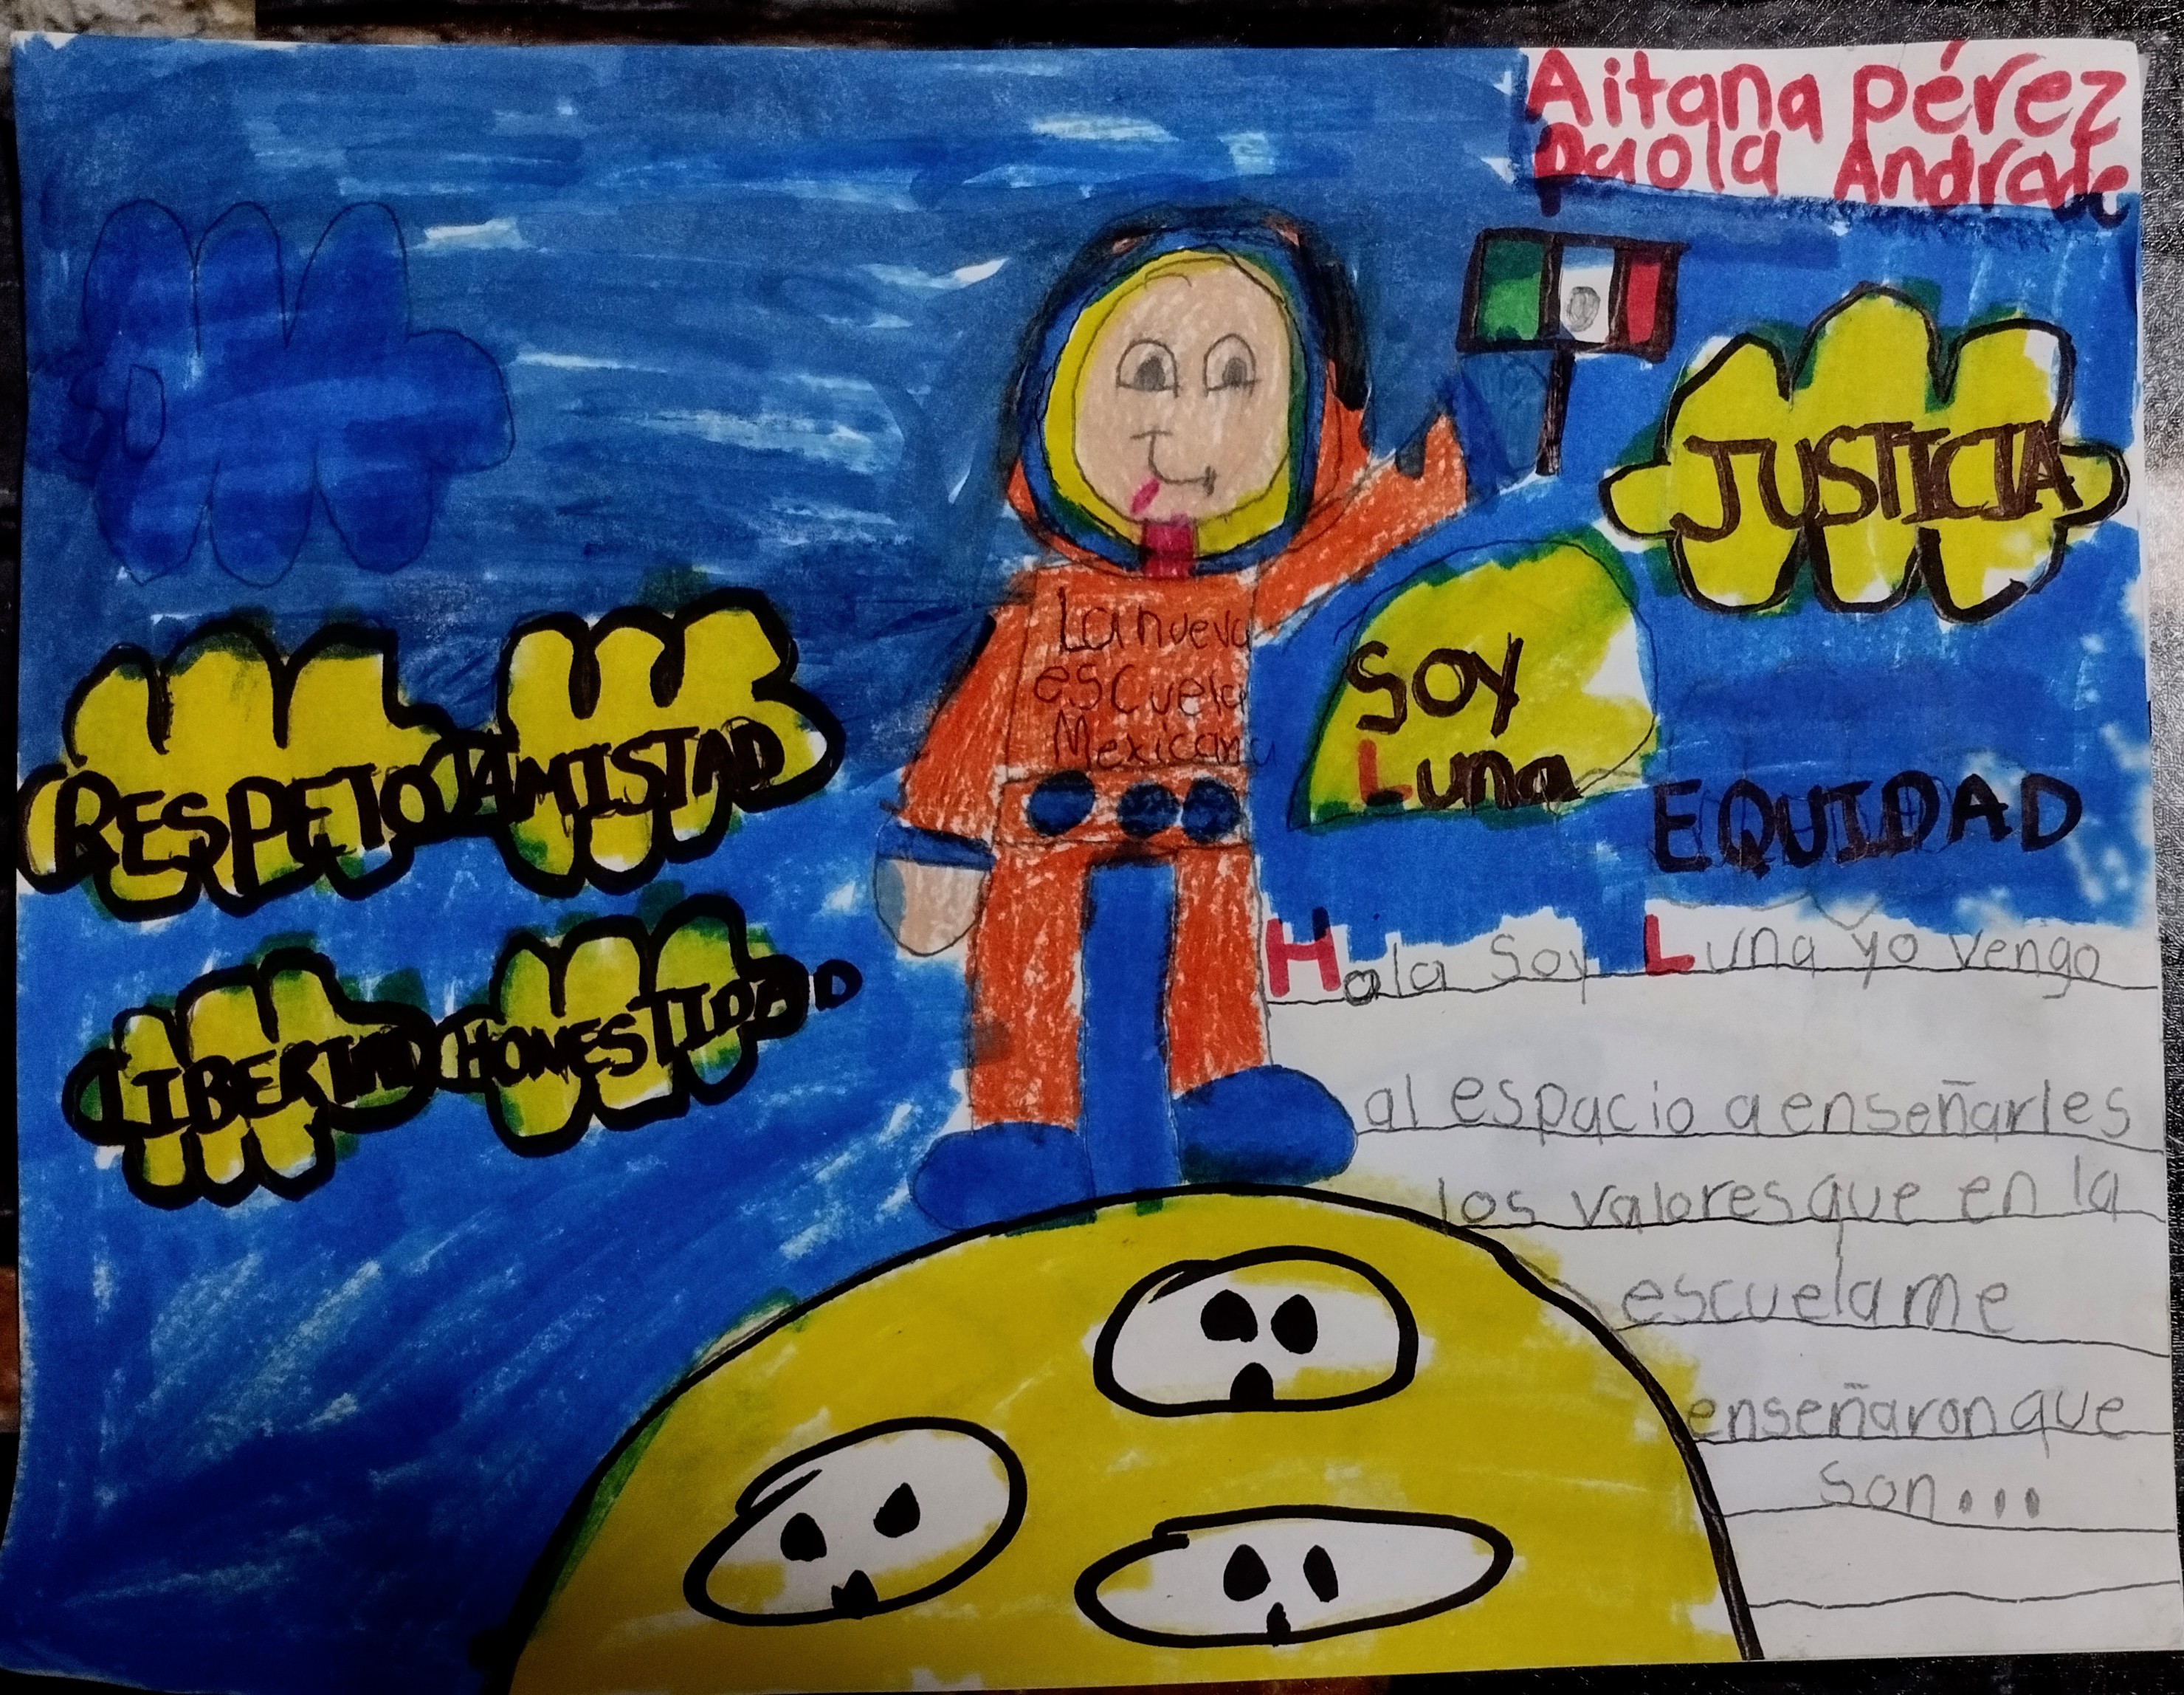 Aitana Pérez
Paola Andrade
JUSTICIA
La nueva
escuela
Mexicana
SOY
Luna
RESPETO
AMISTAD
EQUIDAD
LIBERTAD
HONESTIDAD
Hola Soy Luna yo vengo
al espacio a enseñarles
los valores que en la
escuela me
enseñaron que
son...